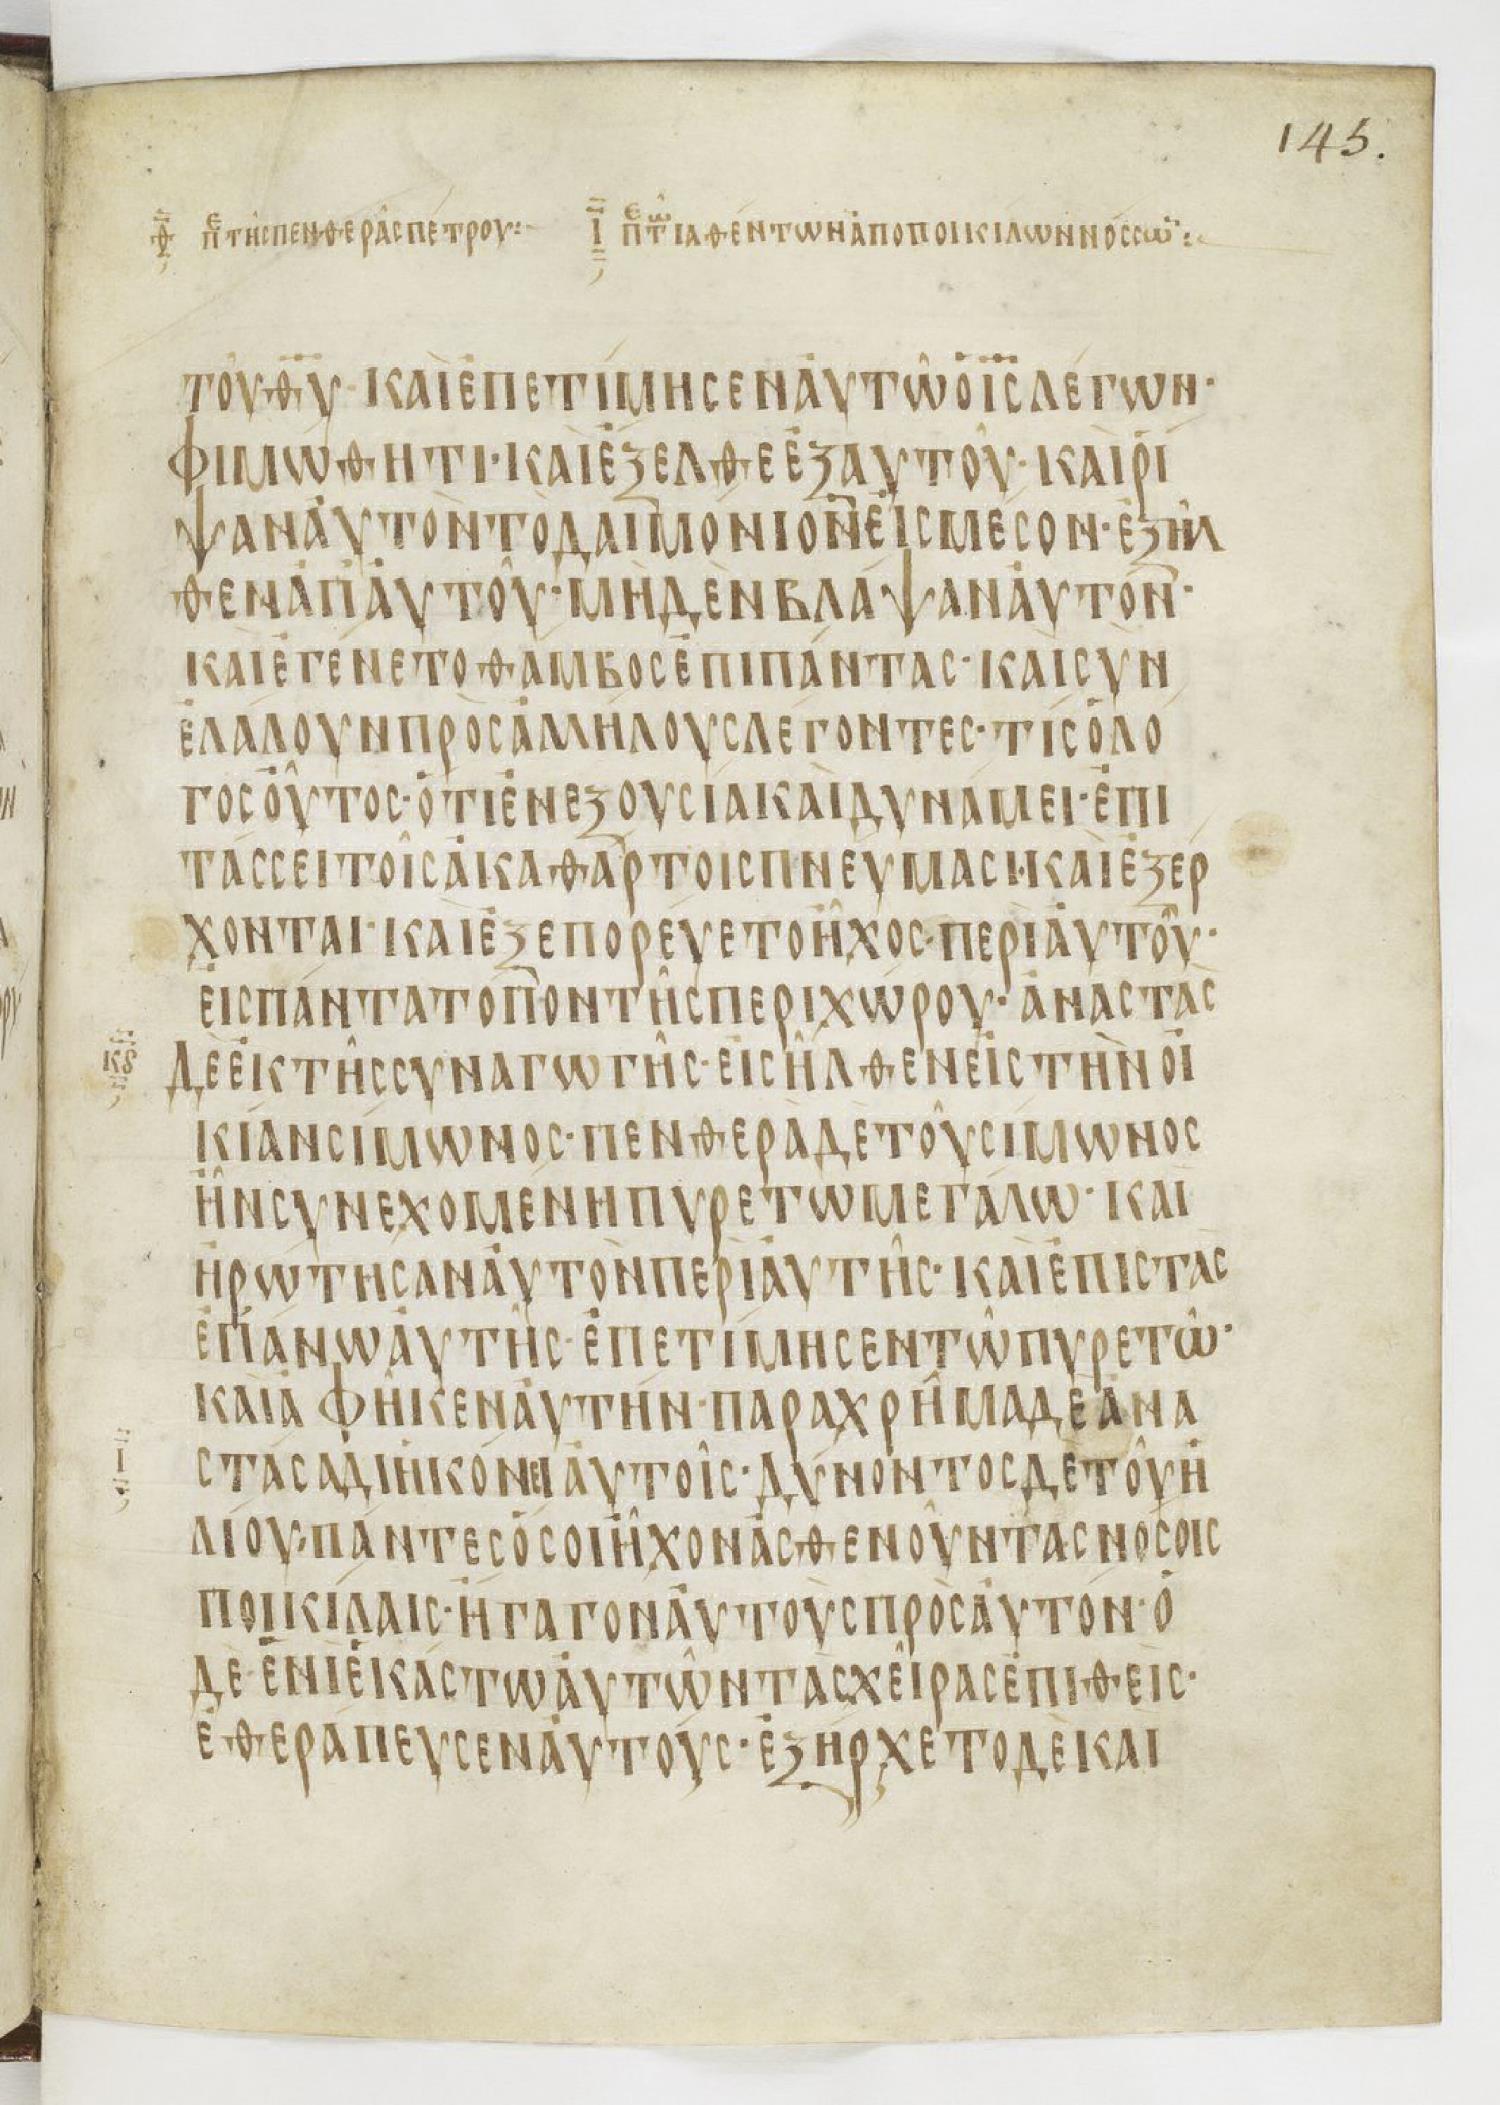 145.
Θ ΠΕ ΤΗΣ ΠΕΝΘΕΡΑΣ ΠΕΤΡΟΥ:
Ι ΠΕ ΤΩ ΙΑΘΕΝΤΩΝ ΑΠΟ ΠΟΙΚΙΛΩΝ ΝΟΣΣΩ:
ΤΟΥ ΘΥ· ΚΑΙ ΕΠΕΤΙΜΗΣΕΝ ΑΥΤΩ Ο ΙΣ ΛΕΓΩΝ·
ΦΙΜΩΘΗΤΙ· ΚΑΙ ΕΞΕΛΘΕ ΕΞ ΑΥΤΟΥ· ΚΑΙ ΡΙ
ΨΑΝ ΑΥΤΟΝ ΤΟ ΔΑΙΜΟΝΙΟΝ ΕΙΣ ΜΕΣΟΝ· ΕΞΗΛ
ΘΕΝ ΑΠ ΑΥΤΟΥ· ΜΗΔΕΝ ΒΛΑΨΑΝ ΑΥΤΟΝ·
ΚΑΙ ΕΓΕΝΕΤΟ ΘΑΜΒΟΣ ΕΠΙ ΠΑΝΤΑΣ· ΚΑΙ ΣΥΝ
ΕΛΑΛΟΥΝ ΠΡΟΣ ΑΛΛΗΛΟΥΣ ΛΕΓΟΝΤΕΣ· ΤΙΣ Ο ΛΟ
ΓΟΣ ΟΥΤΟΣ· ΟΤΙ ΕΝ ΕΞΟΥΣΙΑ ΚΑΙ ΔΥΝΑΜΕΙ· ΕΠΙ
ΤΑΣΣΕΙ ΤΟΙΣ ΑΚΑΘΑΡΤΟΙΣ ΠΝΕΥΜΑΣΙ· ΚΑΙ ΕΞΕΡ
ΧΟΝΤΑΙ· ΚΑΙ ΕΞΕΠΟΡΕΥΕΤΟ ΗΧΟΣ· ΠΕΡΙ ΑΥΤΟΥ·
ΕΙΣ ΠΑΝΤΑ ΤΟΠΟΝ ΤΗΣ ΠΕΡΙΧΩΡΟΥ· ΑΝΑΣΤΑΣ
ΔΕ ΕΚ ΤΗΣ ΣΥΝΑΓΩΓΗΣ· ΕΙΣΗΛΘΕΝ ΕΙΣ ΤΗΝ ΟΙ
ΚΙΑΝ ΣΙΜΩΝΟΣ· ΠΕΝΘΕΡΑ ΔΕ ΤΟΥ ΣΙΜΩΝΟΣ
ΗΝ ΣΥΝΕΧΟΜΕΝΗ ΠΥΡΕΤΩ ΜΕΓΑΛΩ· ΚΑΙ
ΗΡΩΤΗΣΑΝ ΑΥΤΟΝ ΠΕΡΙ ΑΥΤΗΣ· ΚΑΙ ΕΠΙΣΤΑΣ
ΕΠΑΝΩ ΑΥΤΗΣ· ΕΠΕΤΙΜΗΣΕΝ ΤΩ ΠΥΡΕΤΩ·
ΚΑΙ ΑΦΗΚΕΝ ΑΥΤΗΝ· ΠΑΡΑΧΡΗΜΑ ΔΕ ΑΝΑ
Ι ΣΤΑΣΑ ΔΙΗΚΟΝΕΙ ΑΥΤΟΙΣ· ΔΥΝΟΝΤΟΣ ΔΕ ΤΟΥ Η
ΛΙΟΥ· ΠΑΝΤΕΣ ΟΣΟΙ ΗΧΟΝ ΑΣΘΕΝΟΥΝΤΑΣ ΝΟΣΟΙΣ
ΠΟΙΚΙΛΑΙΣ· ΗΓΑΓΟΝ ΑΥΤΟΥΣ ΠΡΟΣ ΑΥΤΟΝ· Ο
ΔΕ· ΕΝΙ ΕΚΑΣΤΩ ΑΥΤΩΝ ΤΑΣ ΧΕΙΡΑΣ ΕΠΙΘΕΙΣ·
ΕΘΕΡΑΠΕΥΣΕΝ ΑΥΤΟΥΣ· ΕΞΗΡΧΕΤΟ ΔΕ ΚΑΙ